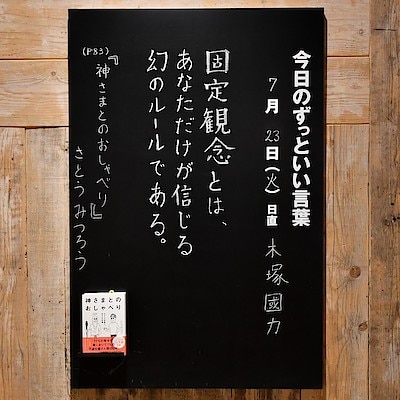 今日のずっといい言葉
7月23日(火) 日直 木塚國力
固定観念とは、
あなただけが信じる
幻のルールである。
『神さまとのおしゃべり』
(P83)
さとうみつろう
神さまとのおしゃべり